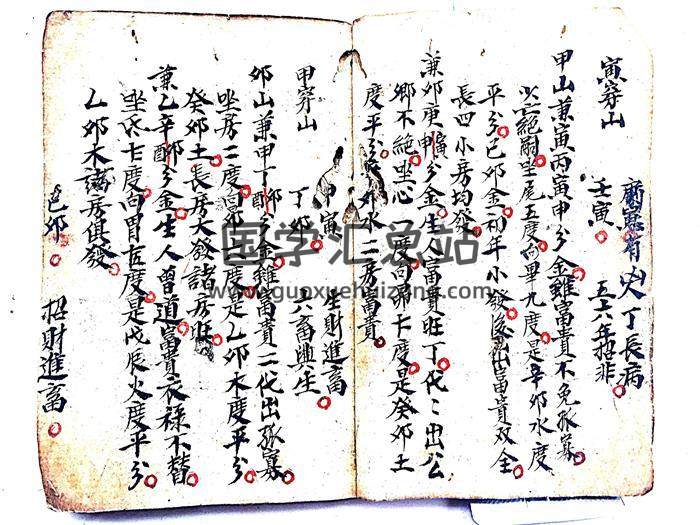 寅穿山
壬寅 五六年招非
人丁長病
甲山兼寅丙寅申分金雖富貴不免孤寡
坐尾五度向畢九度是辛卯水度
平分己卯金初年小發後出富貴双全
長四小房均發
兼卯庚寅申分金生人富貴旺丁代々出公
鄉不絕坐心一度向昴七度是癸卯土
度平分 卯水二房富貴
甲穿山
甲寅 生財進畜
丁卯 六畜興生
卯山兼甲丁卯酉分金雖富貴二代出孤寡
坐房二度向昴七度是乙卯木度平分
癸卯土長房大發諸房旺
兼乙辛卯酉分金生人曾道富貴衣祿不替
坐氐七度向胃 度是戊辰火度平分
乙卯木諸房俱發
乙卯 招財進畜
国学汇总站
www.guoxuehuizong.com